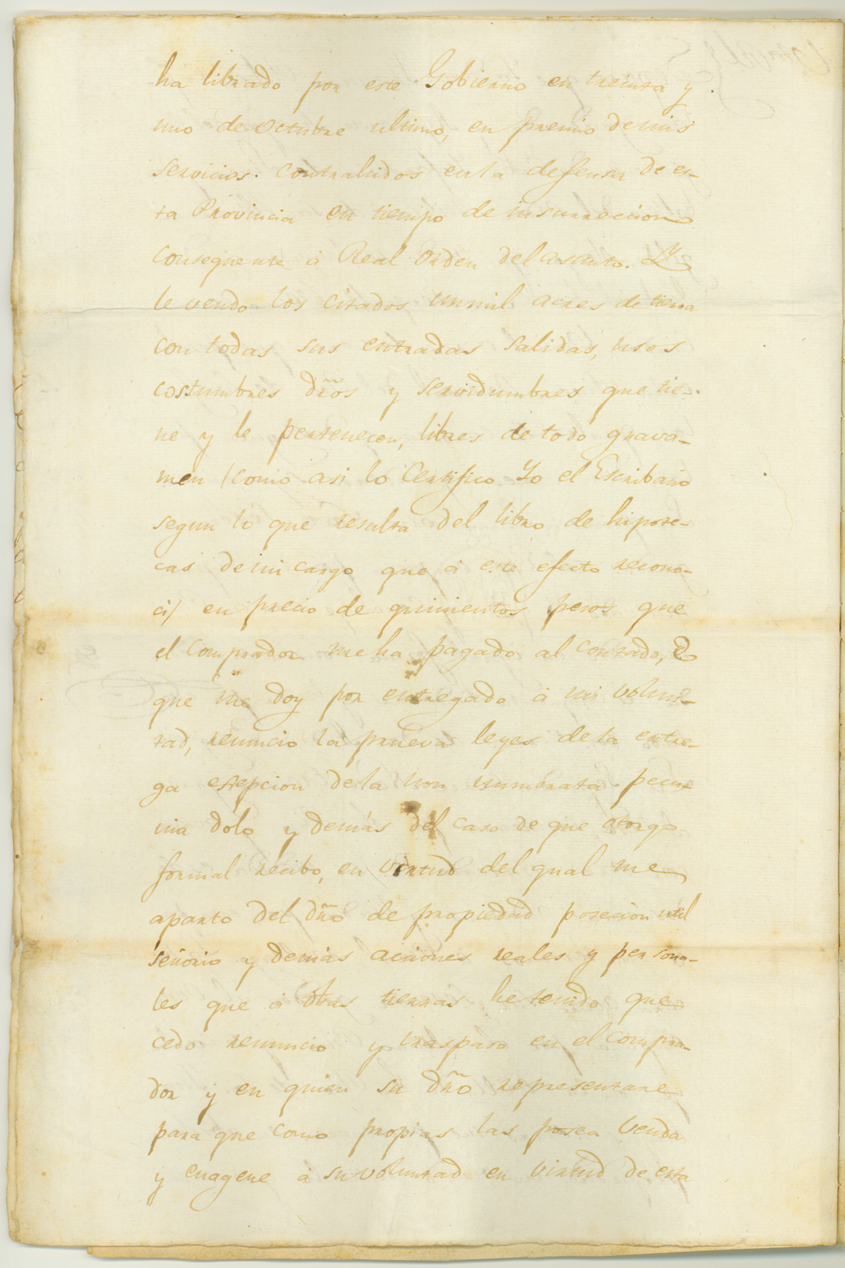 ha librado por este Gobierno en treinta y
uno de Octubre ultimo, en premio de mis
servicios contrahidos en la defensa de es-
ta Provincia en tiempo de insurreccion
consequente á Real orden del asunto. Y
le vendo los citados un mil acres de tierra
con todas sus entradas salidas, usos
costumbres dr̃os y servidumbres que tie-
ne y le pertenecen, libres de todo grava-
men (como asi lo Certifico Yo el Escribano
segun lo que resulta del libro de hipote-
cas de mi cargo que á este efecto recono-
ci) en precio de quinientos pesos que
el Comprador me ha pagado al contado, de
que me doy por entregado á mi volun-
tad, renuncio la prueva leyes de la entre-
ga esepcion de la non numbrata pecu-
nia dolo y demas del caso de que otorgo
formal recibo, en virtud del qual me
aparto del dr̃o de propiedad posecion util
señorio y demás acciones reales y persona-
les que á dhas tierras he tenido que
cedo renuncio y traspaso en el compra-
dor y en quien su dr̃o representare
para que como propias las posea venda
y enagene á su voluntad en virtud de esta